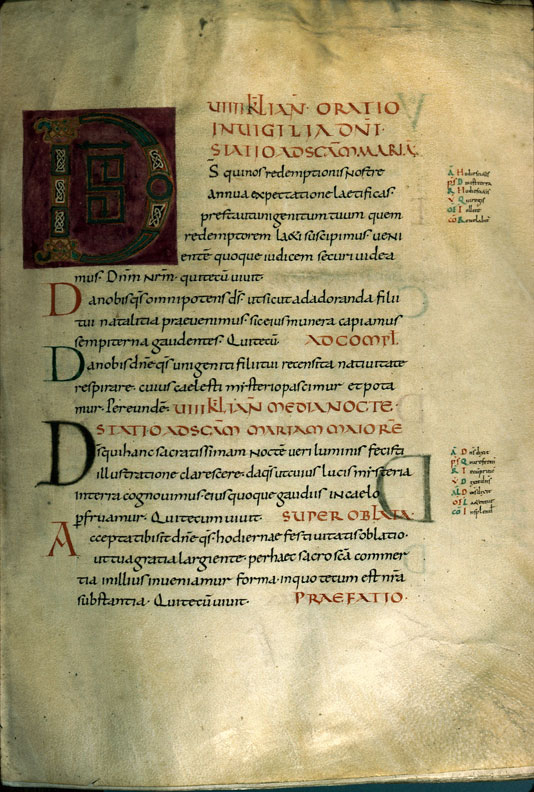 VIIII KL IAN· ORATIO
IN VIGILIA DNI·
STATIO AD SCAM MARIA
DS qui nos redemptionis nostre
annua expectatione laetificas·
presta ut unigenitum tuum quem
redemptorem laeti suscipimus· veni
entem quoque iudicem securi videa
mus· Dnm nrm· qui tecu vivit·
Da nobis qs omnipotens ds· ut sicut adoranda filii
tui natalitia praevenimus· sic eius munera capiamus
sempiterna gaudentes· Qui tecu· AD COMPL
Da nobis dne qs unigeniti filii tui recensita nativitate
respirare· cuius caelesti misterio pascimur et pota
mur· Per eunde· VIIII KL IAN MEDIA NOCTE·
STATIO AD SCAM MARIAM MAIORE
Ds qui hanc sacratissimam nocte veri luminis fecisti
illustratione clarescere· da qs ut cuius lucis misteria
in terra cognovimus· eius quoque gaudiis in caelo
pfruamur· Qui tecum vivit· SUPER OBLATA·
Accepta tibi sit dne qs· hodiernae festivitatis oblatio·
ut tua gratia largiente· per haec sacro sca commer
tia in illius inveniamur forma· in quo tecum est nra
substantia· Qui tecu vivit· PRAEFATIO·